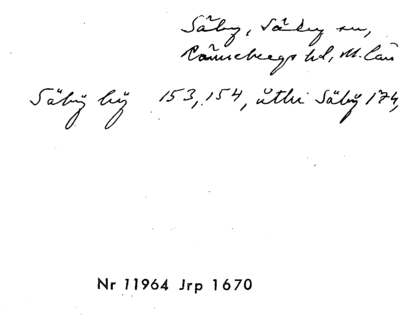 Säby, Säby sn,
Rönnebergs hd, M. län
Säbÿ bÿ 153, 154, ÿthi Säbÿ 174,
Nr 11964 Jrp 1670